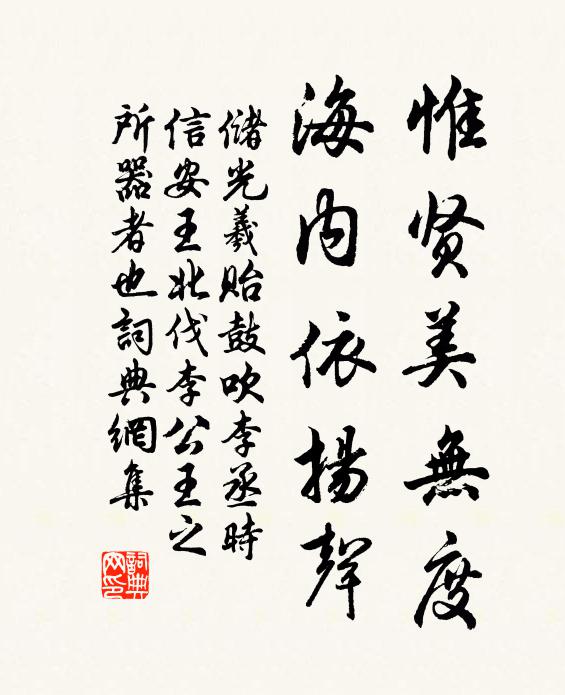 惟贤美無度
海内依揚聲
儲光羲貽鼓吹李丞時
信安王北伐李公王之
所器者也詞典網集
詞典网印